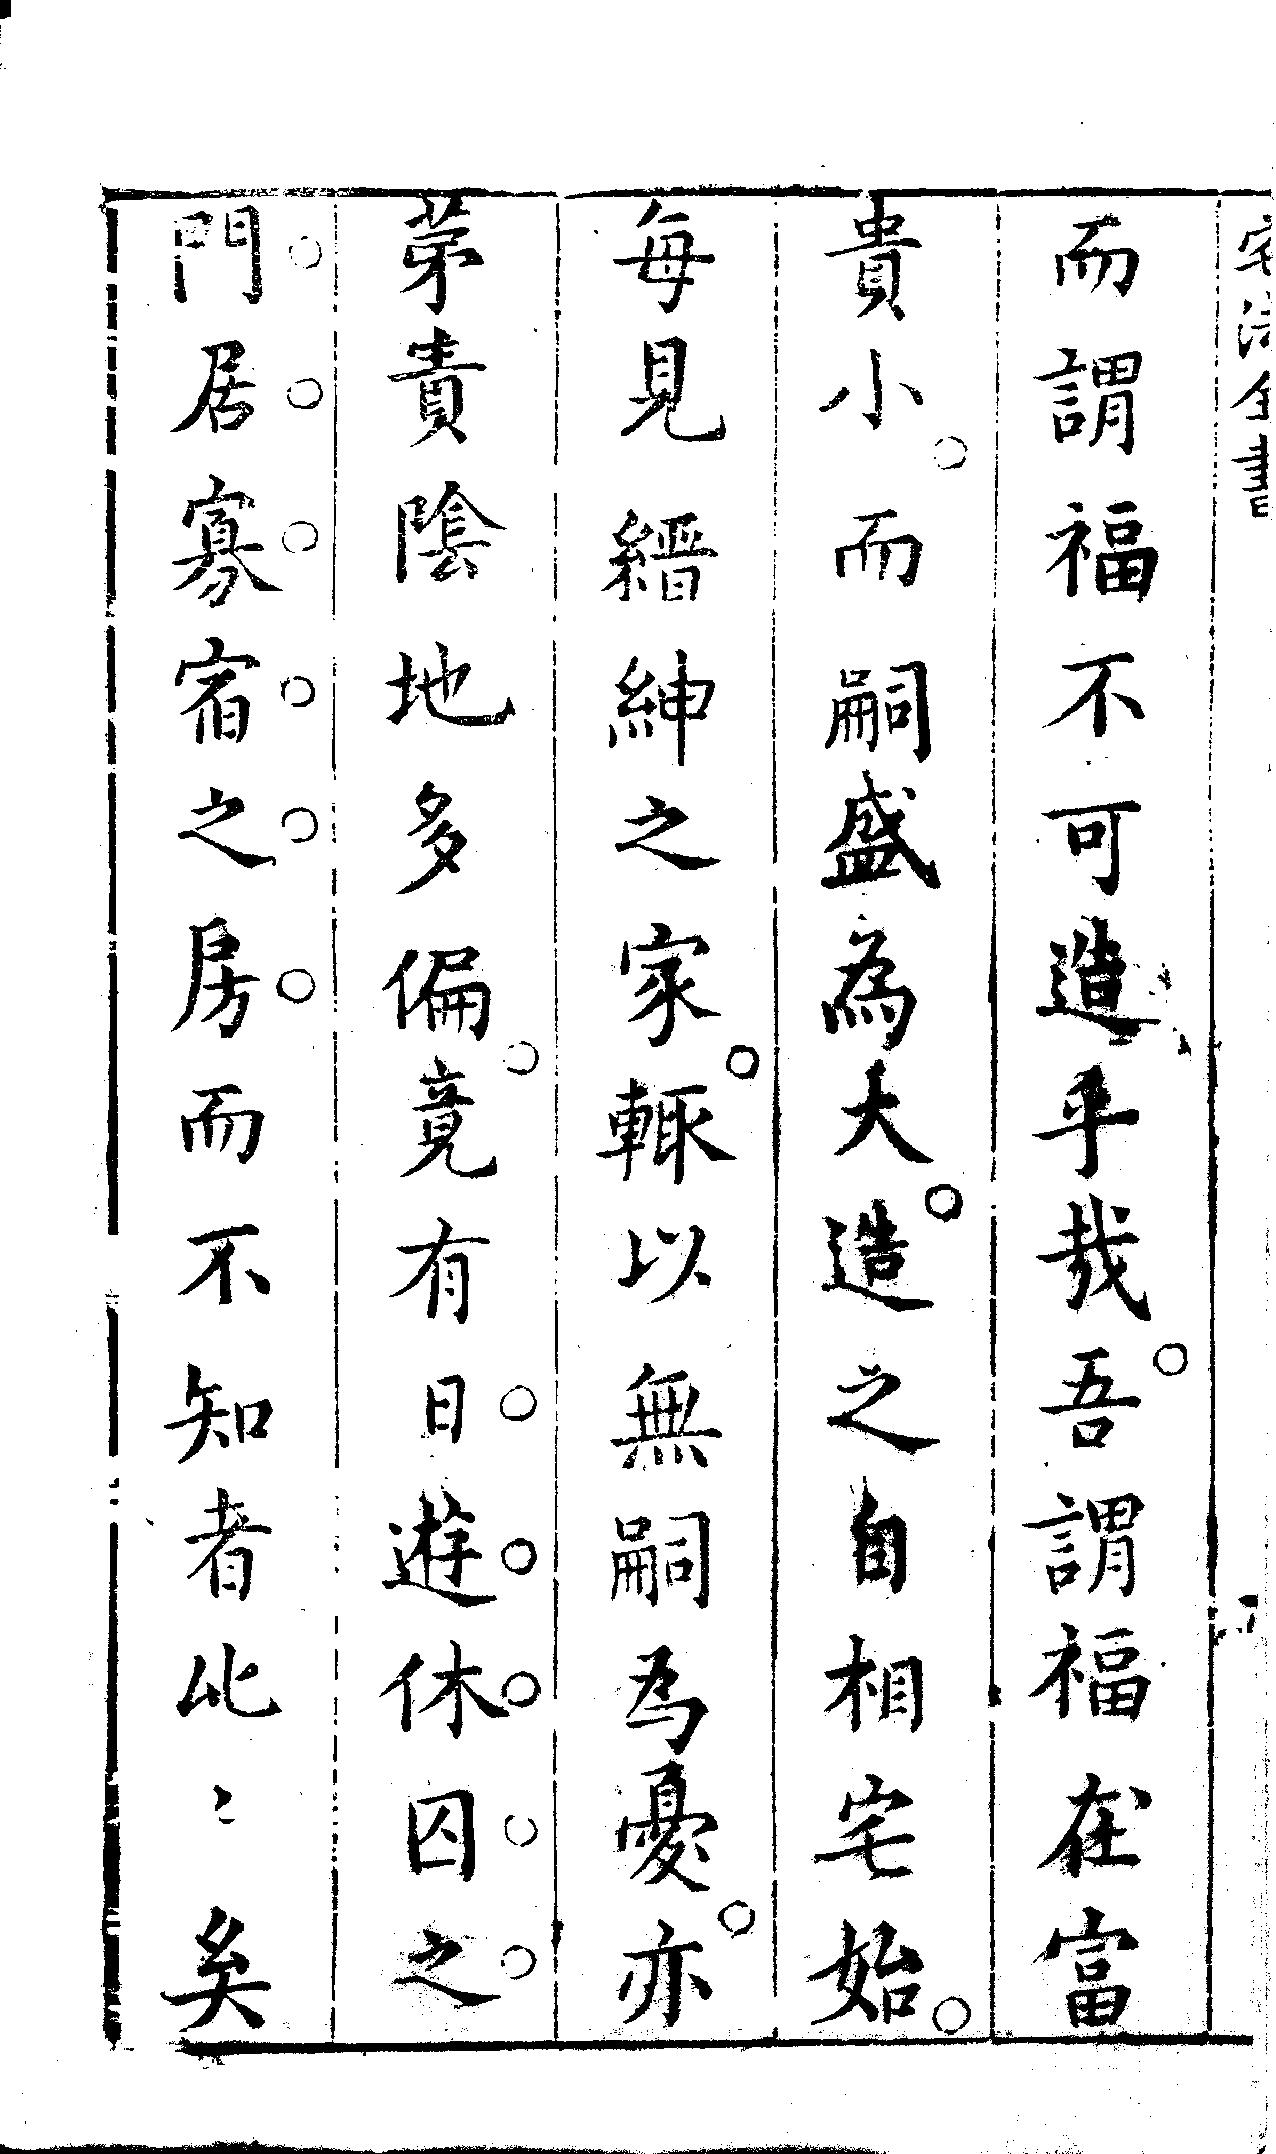 宅法全書
而謂福不可造乎哉吾謂福在富
貴小而嗣盛為大造之自相宅始
每見縉紳之家輒以無嗣為憂亦
第責陰地多偏竟有日遊休囚之
門居寡宿之房而不知者比〻矣